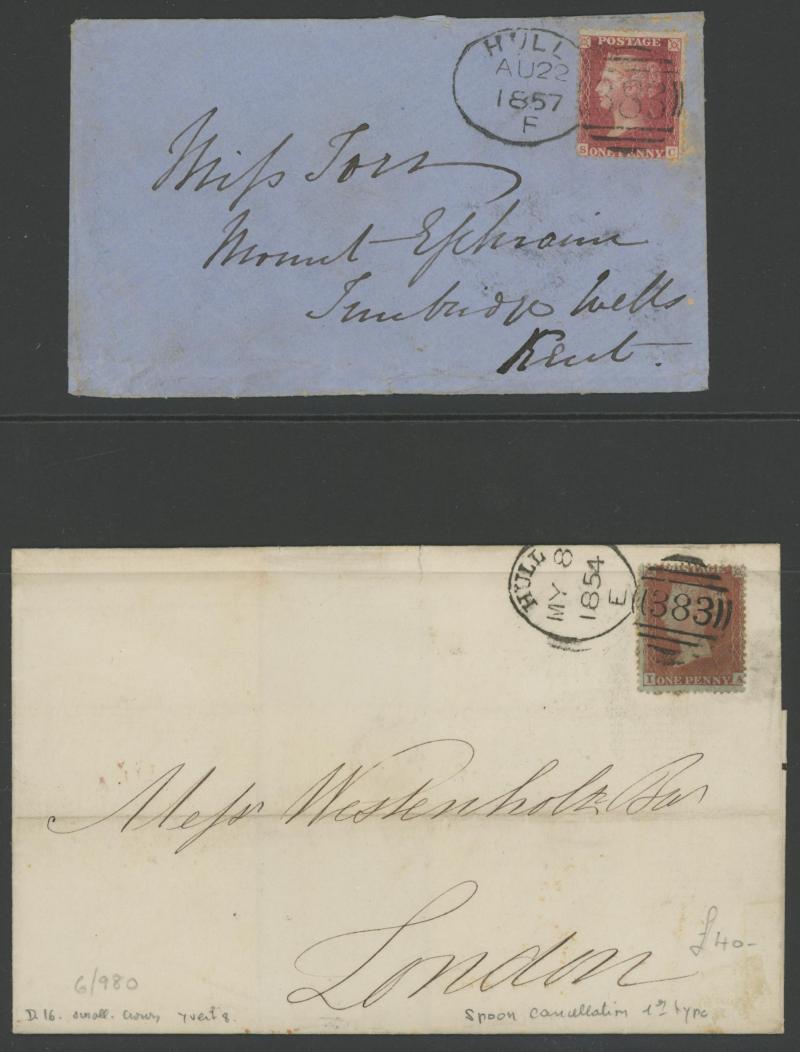 HULL
AU22
1857
F
POSTAGE
383
S ONE PENNY C
Miss Torr
Mount Ephraim
Tunbridge Wells
Kent.
HULL
MY 8
1854
E
383
I ONE PENNY A
Messrs Westenholz Bros
London
£40-
6/980
D. 16. small. crown yvert 8.
Spoon cancellation 1st type